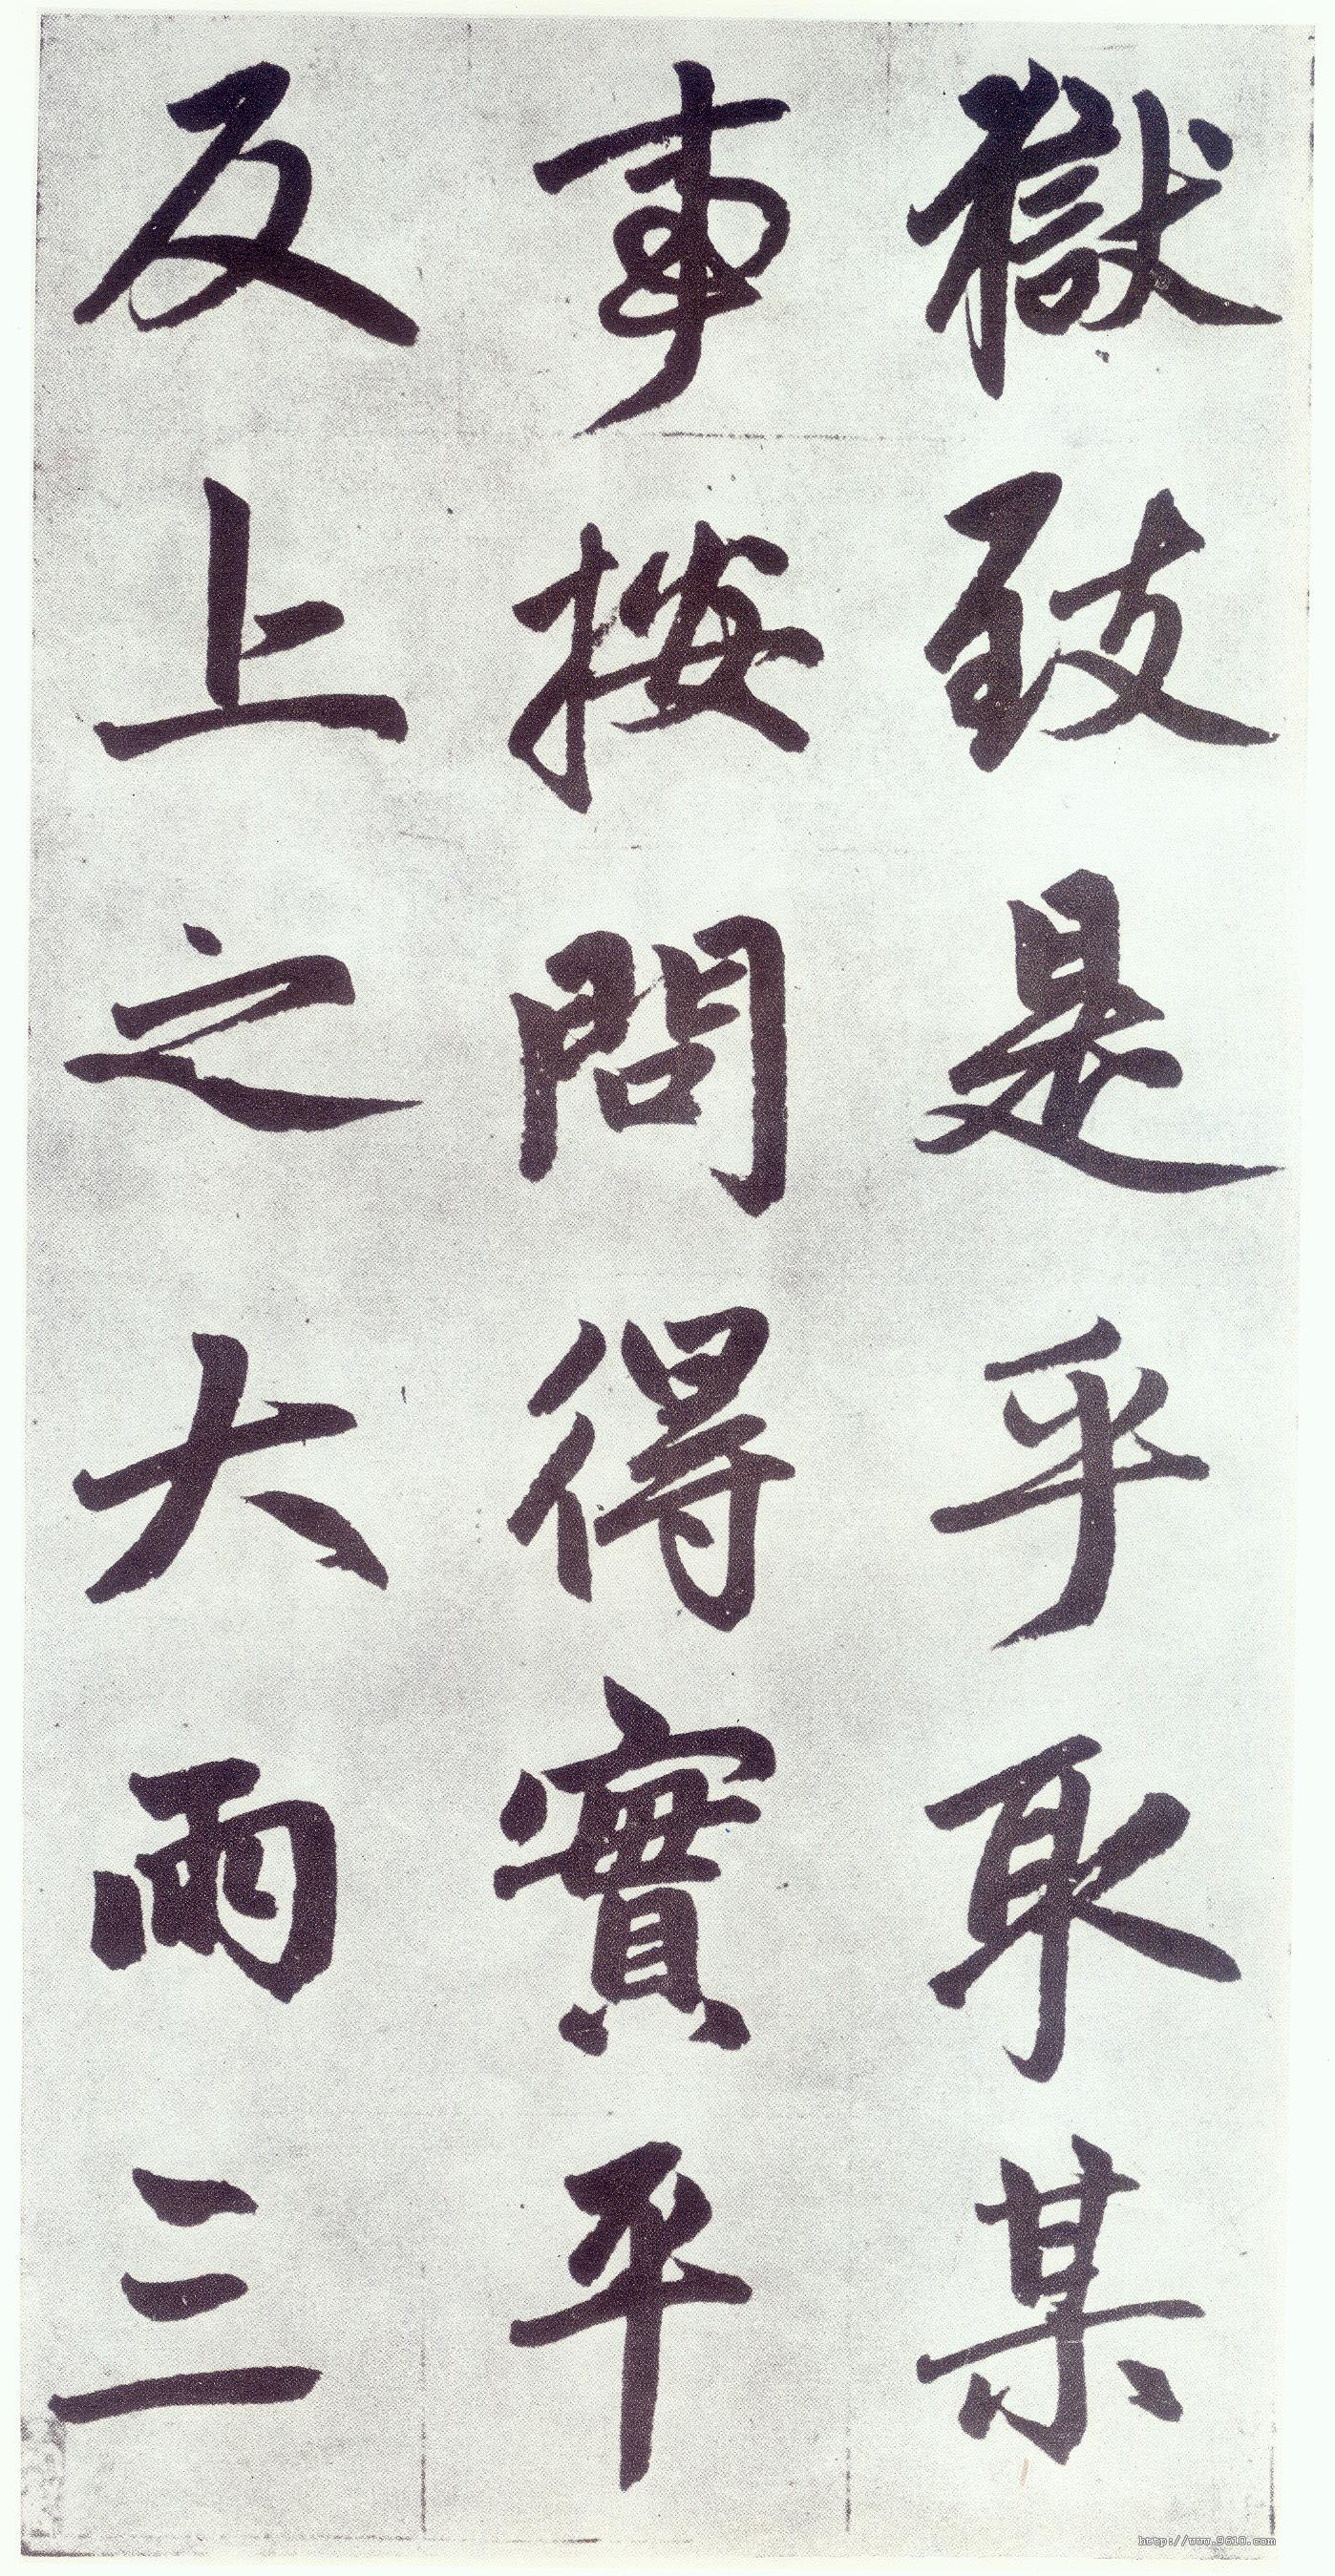 獄致是乎取某
事按問得實平
反上之大雨三
http://www.9610.com